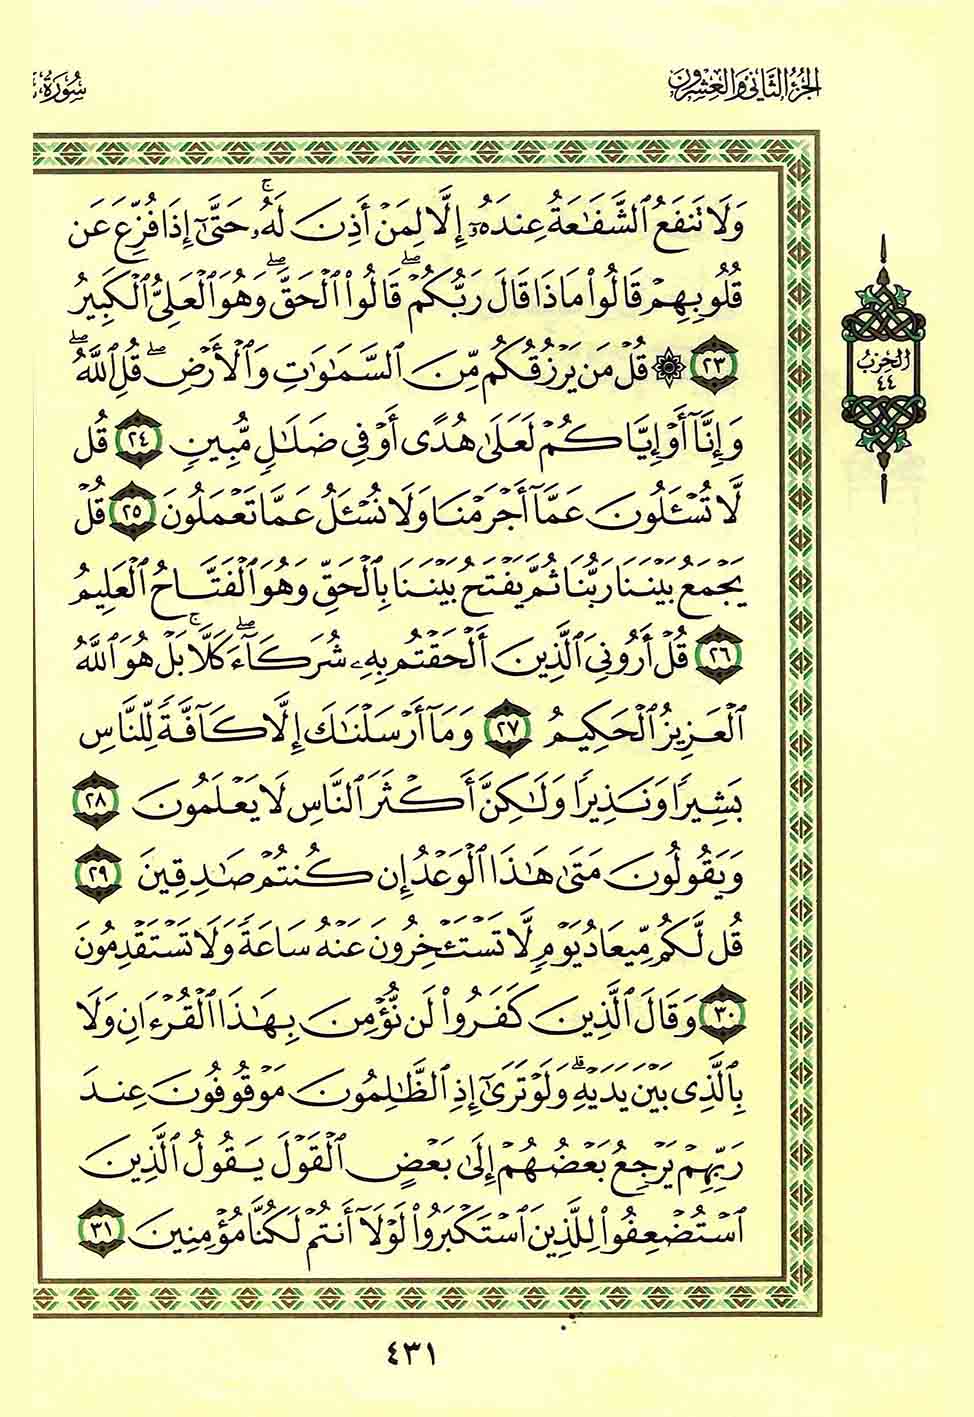 الجزء الثاني والعشرون
سورة
وَلَا تَنفَعُ ٱلشَّفَٰعَةُ عِندَهُۥٓ إِلَّا لِمَنْ أَذِنَ لَهُۥۚ حَتَّىٰٓ إِذَا فُزِّعَ عَن
قُلُوبِهِمْ قَالُوا۟ مَاذَا قَالَ رَبُّكُمْۖ قَالُوا۟ ٱلْحَقَّۖ وَهُوَ ٱلْعَلِىُّ ٱلْكَبِيرُ
٢٣ ۞ قُلْ مَن يَرْزُقُكُم مِّنَ ٱلسَّمَٰوَٰتِ وَٱلْأَرْضِۖ قُلِ ٱللَّهُۖ
وَإِنَّآ أَوْ إِيَّاكُمْ لَعَلَىٰ هُدًى أَوْ فِى ضَلَٰلٍ مُّبِينٍ ٢٤ قُل
لَّا تُسْـَٔلُونَ عَمَّآ أَجْرَمْنَا وَلَا نُسْـَٔلُ عَمَّا تَعْمَلُونَ ٢٥ قُلْ
يَجْمَعُ بَيْنَنَا رَبُّنَا ثُمَّ يَفْتَحُ بَيْنَنَا بِٱلْحَقِّ وَهُوَ ٱلْفَتَّاحُ ٱلْعَلِيمُ
٢٦ قُلْ أَرُونِىَ ٱلَّذِينَ أَلْحَقْتُم بِهِۦ شُرَكَآءَۖ كَلَّاۚ بَلْ هُوَ ٱللَّهُ
ٱلْعَزِيزُ ٱلْحَكِيمُ ٢٧ وَمَآ أَرْسَلْنَٰكَ إِلَّا كَآفَّةً لِّلنَّاسِ
بَشِيرًا وَنَذِيرًا وَلَٰكِنَّ أَكْثَرَ ٱلنَّاسِ لَا يَعْلَمُونَ ٢٨
وَيَقُولُونَ مَتَىٰ هَٰذَا ٱلْوَعْدُ إِن كُنتُمْ صَٰدِقِينَ ٢٩
قُل لَّكُم مِّيعَادُ يَوْمٍ لَّا تَسْتَـْٔخِرُونَ عَنْهُ سَاعَةً وَلَا تَسْتَقْدِمُونَ
٣٠ وَقَالَ ٱلَّذِينَ كَفَرُوا۟ لَن نُّؤْمِنَ بِهَٰذَا ٱلْقُرْءَانِ وَلَا
بِٱلَّذِى بَيْنَ يَدَيْهِۗ وَلَوْ تَرَىٰٓ إِذِ ٱلظَّٰلِمُونَ مَوْقُوفُونَ عِندَ
رَبِّهِمْ يَرْجِعُ بَعْضُهُمْ إِلَىٰ بَعْضٍ ٱلْقَوْلَ يَقُولُ ٱلَّذِينَ
ٱسْتُضْعِفُوا۟ لِلَّذِينَ ٱسْتَكْبَرُوا۟ لَوْلَآ أَنتُمْ لَكُنَّا مُؤْمِنِينَ ٣١
الحزب
٤٤
٤٣١